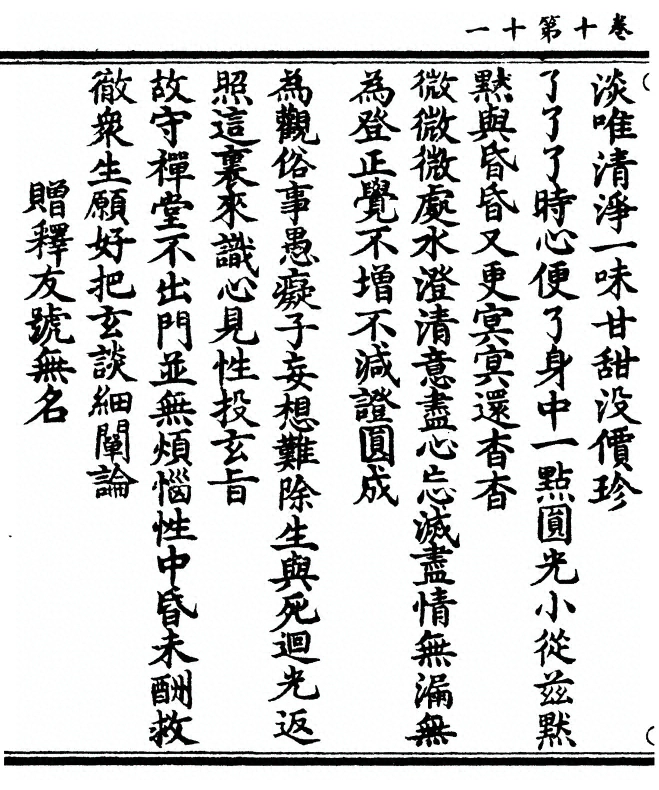 卷十第十一
淡唯清淨一味甘甜没價珍
了了了時心便了身中一點圓光小從茲默
默與昏昏又更㝠㝠還杳杳
微微微處水澄清意盡心忘滅盡情無漏無
為登正覺不增不減證圓成
為觀俗事愚癡子妄想難除生與死迴光返
照這裏來識心見性投玄旨
故守禪堂不出門並無煩惱性中昏未酬救
徹衆生願好把玄談細闡論
贈釋友號無名